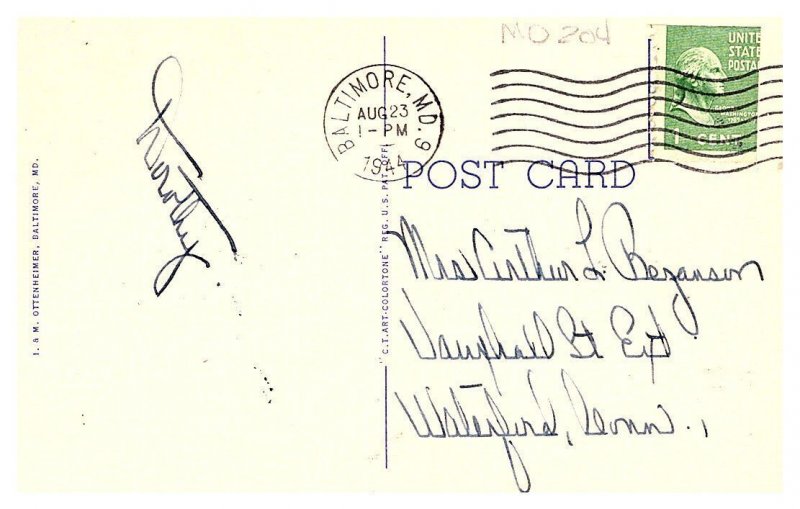 MD 204
UNITED
STATES
POSTA
1 CENT
BALTIMORE, MD. 9
AUG 23
1 - PM
1944
POST CARD
Dorothy
I. & M. OTTENHEIMER, BALTIMORE, MD.
"C.T. ART-COLORTONE" REG. U.S. PAT. OFF.
Mrs Arthur L. Bezanson
Vauxhall St Ext
Waterford, Conn.,